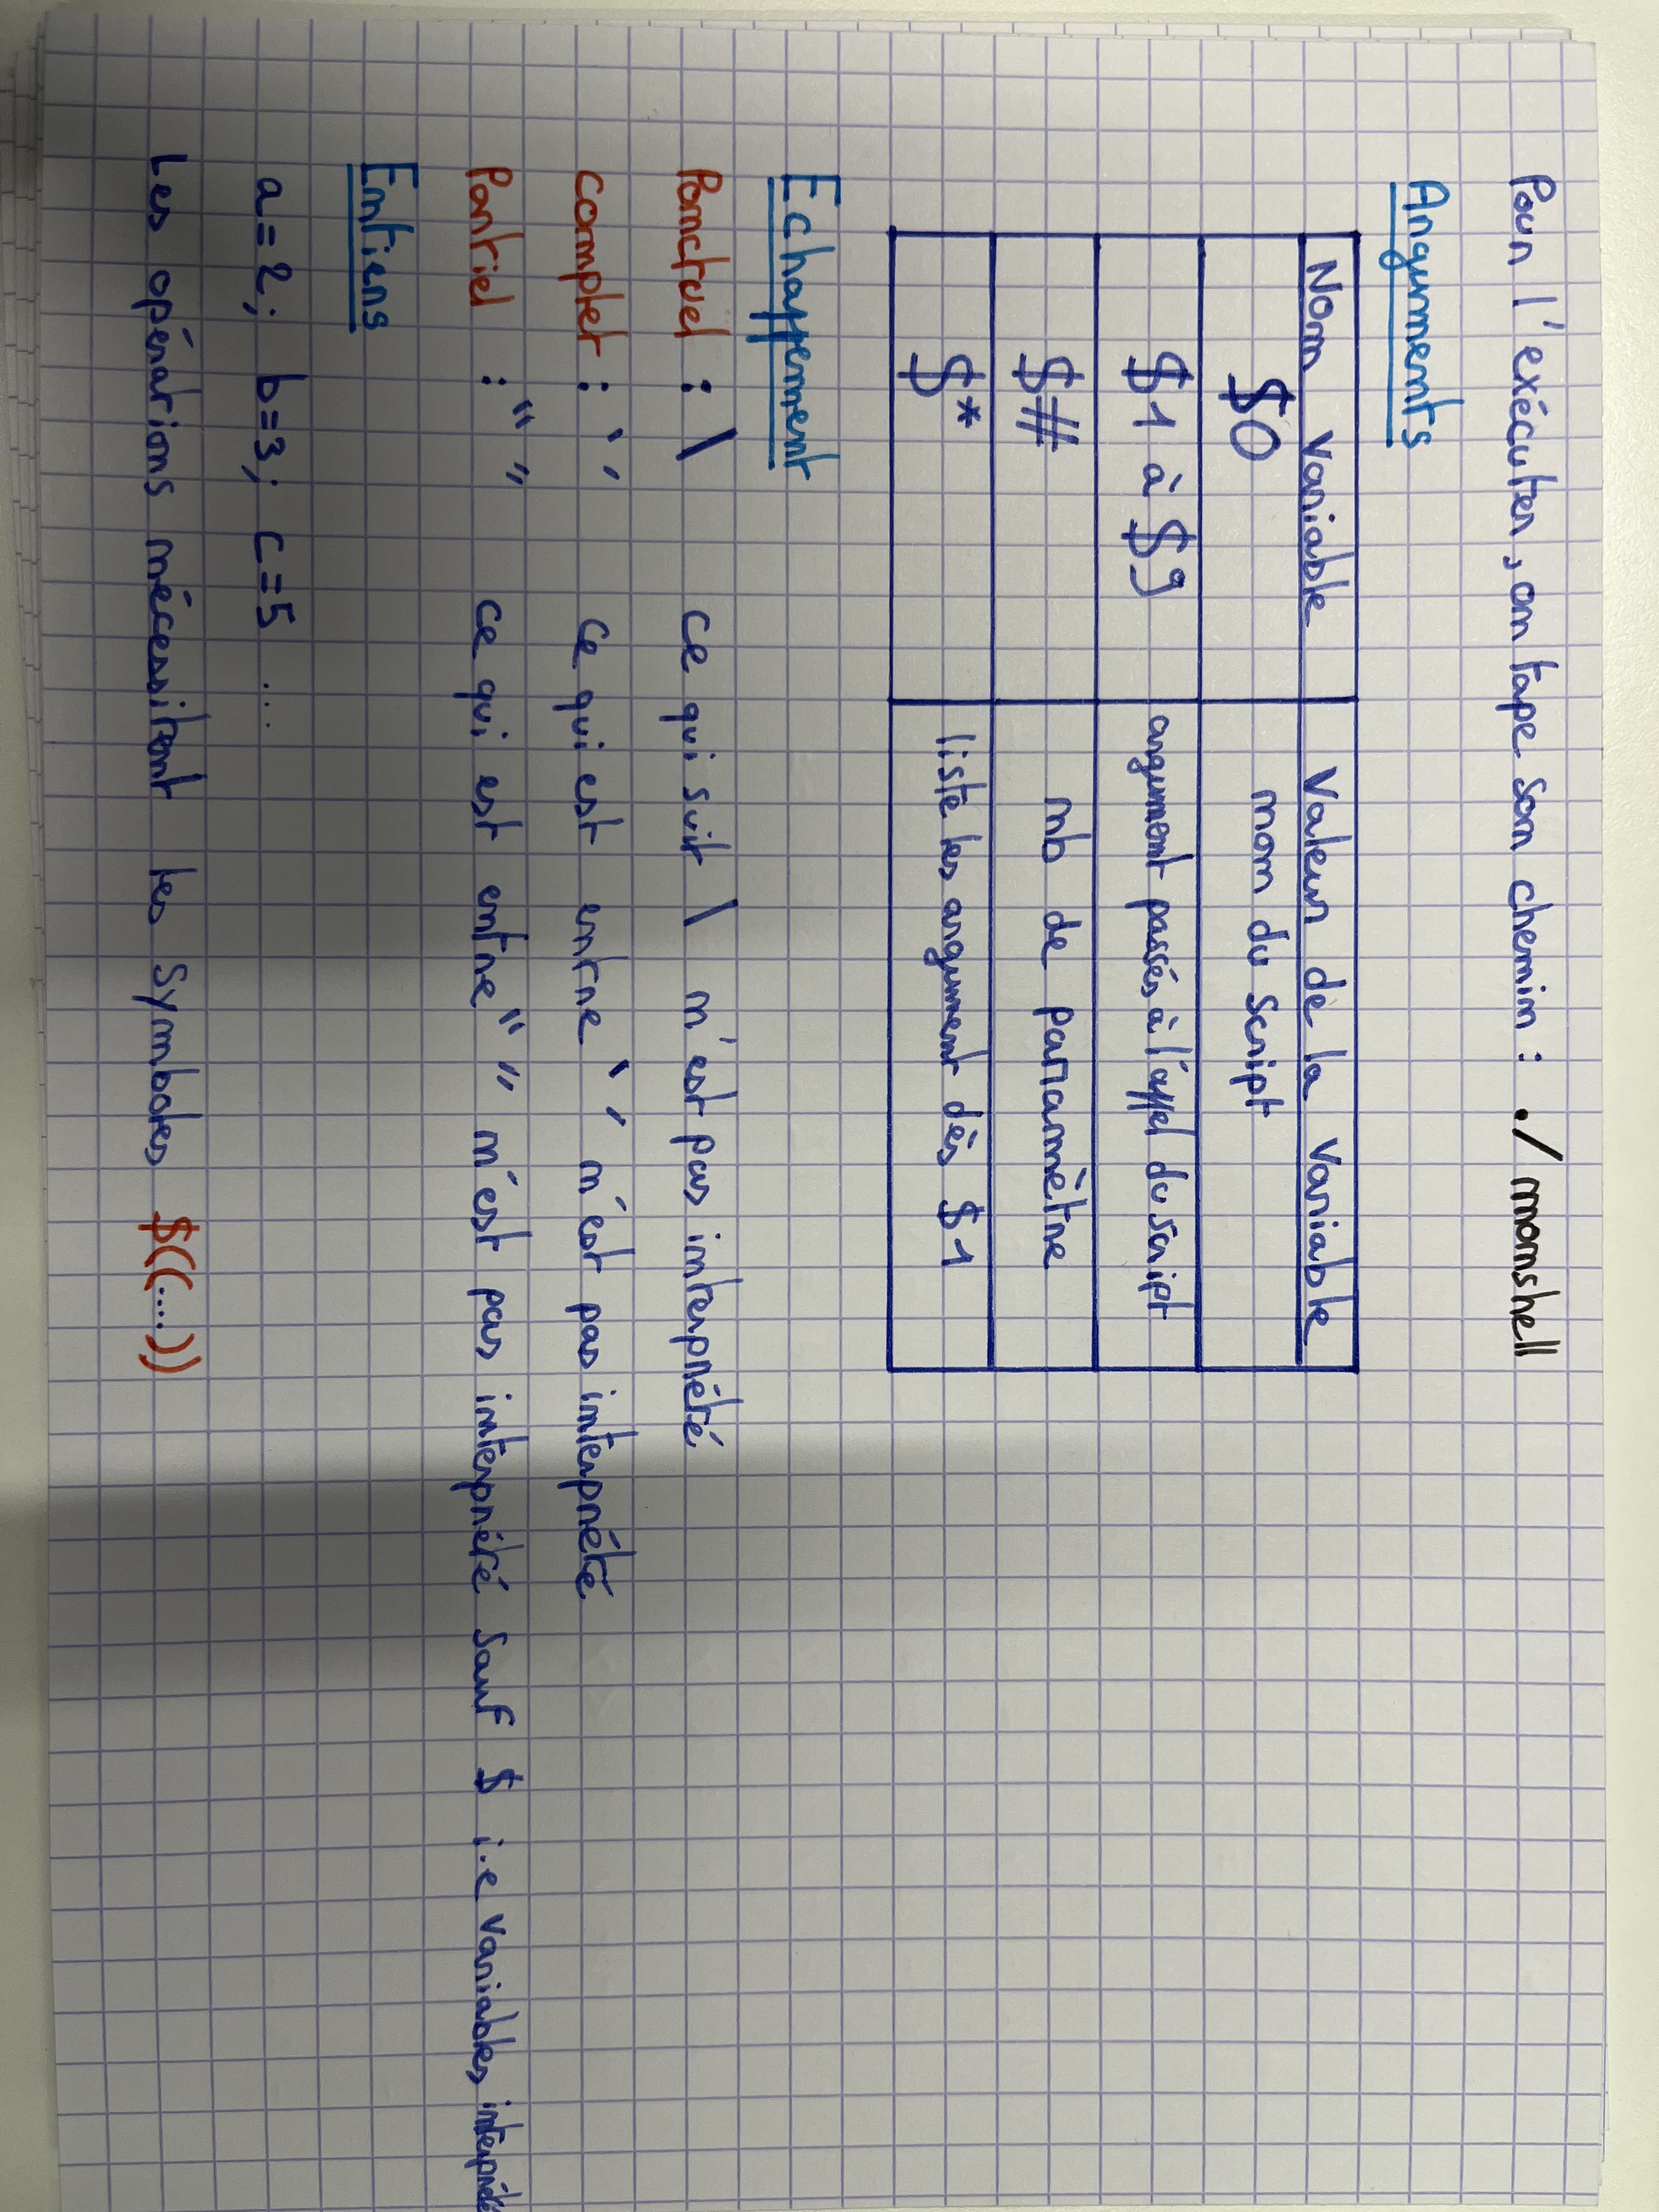 Pour l'exécuter, on tape son chemin : ./ monshell
Arguments
Nom variable Valeur de la variable
$0 nom du script
$1 à $9 argument passés à l'appel du script
$# nb de paramètre
$* liste les argument dès $1
Echappement
Ponctuel : \ ce qui suit \ n'est pas interprété
complet : ‵ ′ ce qui est entre ‵ ′ n'est pas interprété
Partiel : “ ” ce qui est entre “ ” n'est pas interprété sauf $ i.e variables interprété
Entiers
a=2; b=3; c=5 ...
Les opérations nécessitent les symboles $((....))